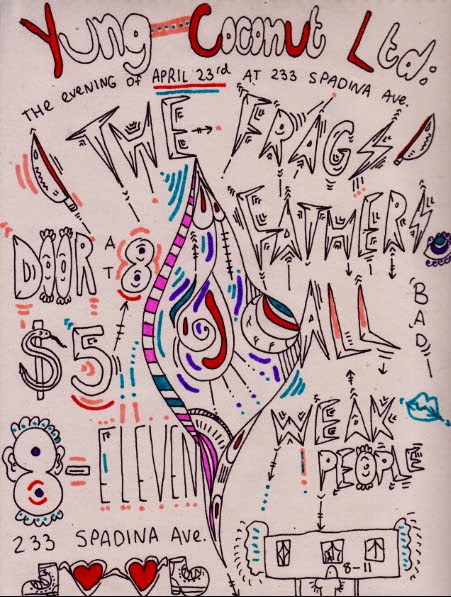 Yung Coconut Ltd:
THE evening OF APRIL 23rd AT 233 SPADINA Ave.
THE FRAGS
FATHERS
DOOR AT 8
$5
ALL
BAD
WEAK
PEOPLE
8-ELEVEN
233 SPADINA Ave.
8-11